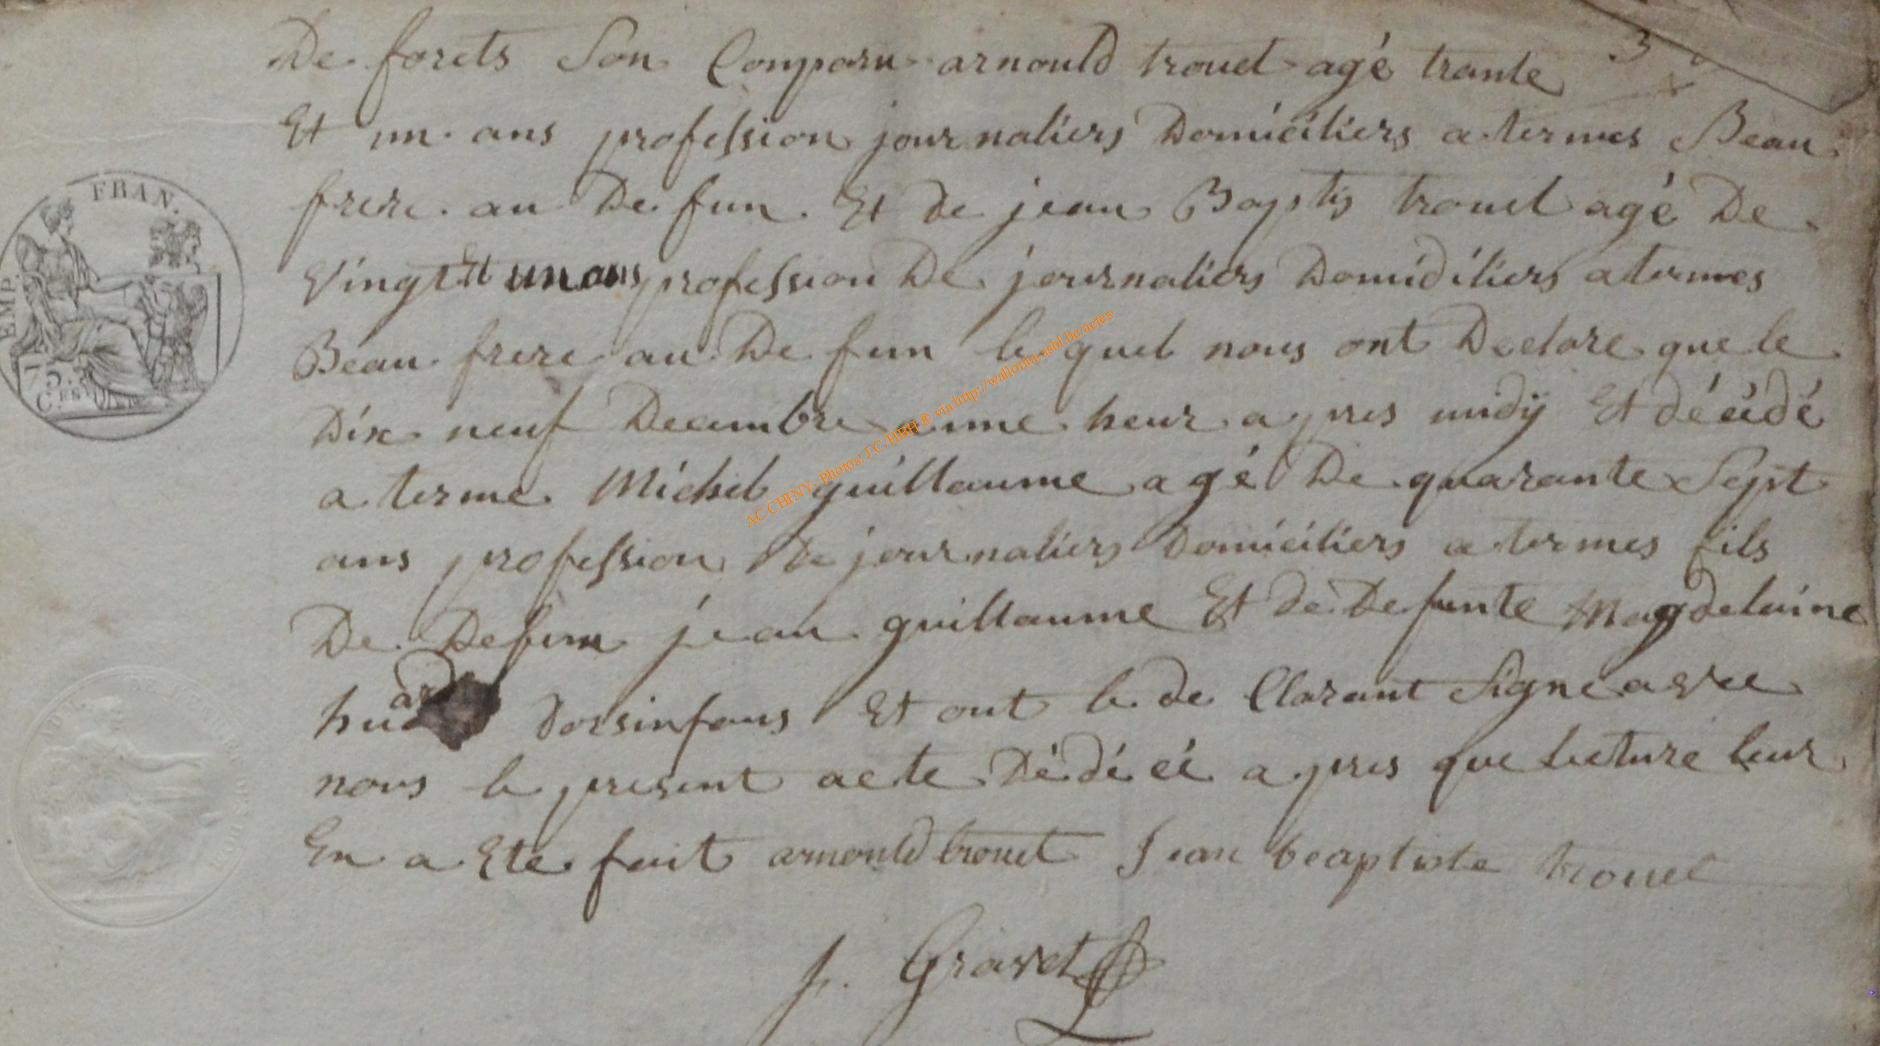 De forets Son Comparu arnould trouet agé trante 3
Et un ans profession journaliers Domiciliers a termes Beau
frere au De fun Et de jean Baptis trouet agé De
Vingt Et un ans profession De journaliers Domidiliers a termes
Beau frere au De fun le quel nous ont Declare que le
Dix neuf Decembre a une heur a pres midÿ Et décédé
a terme Michel guillaume agé De quarante Sept
ans profession De journaliers Domiciliers a termes fils
De Defun jean guillaume Et de Defunte Magdelaine
huard Dorsinfans Et ont le de Clarant Signe avec
nous le present acte Dédéié a pres que lecture leur
En a Ete fait arnould trouet Jean baptiste trouet
f. Gravet
EMP. FRAN.
75.
C.ES
AC.CHINY. Photos: J.C. HBH © via http://wallonia.asbl.be/actes